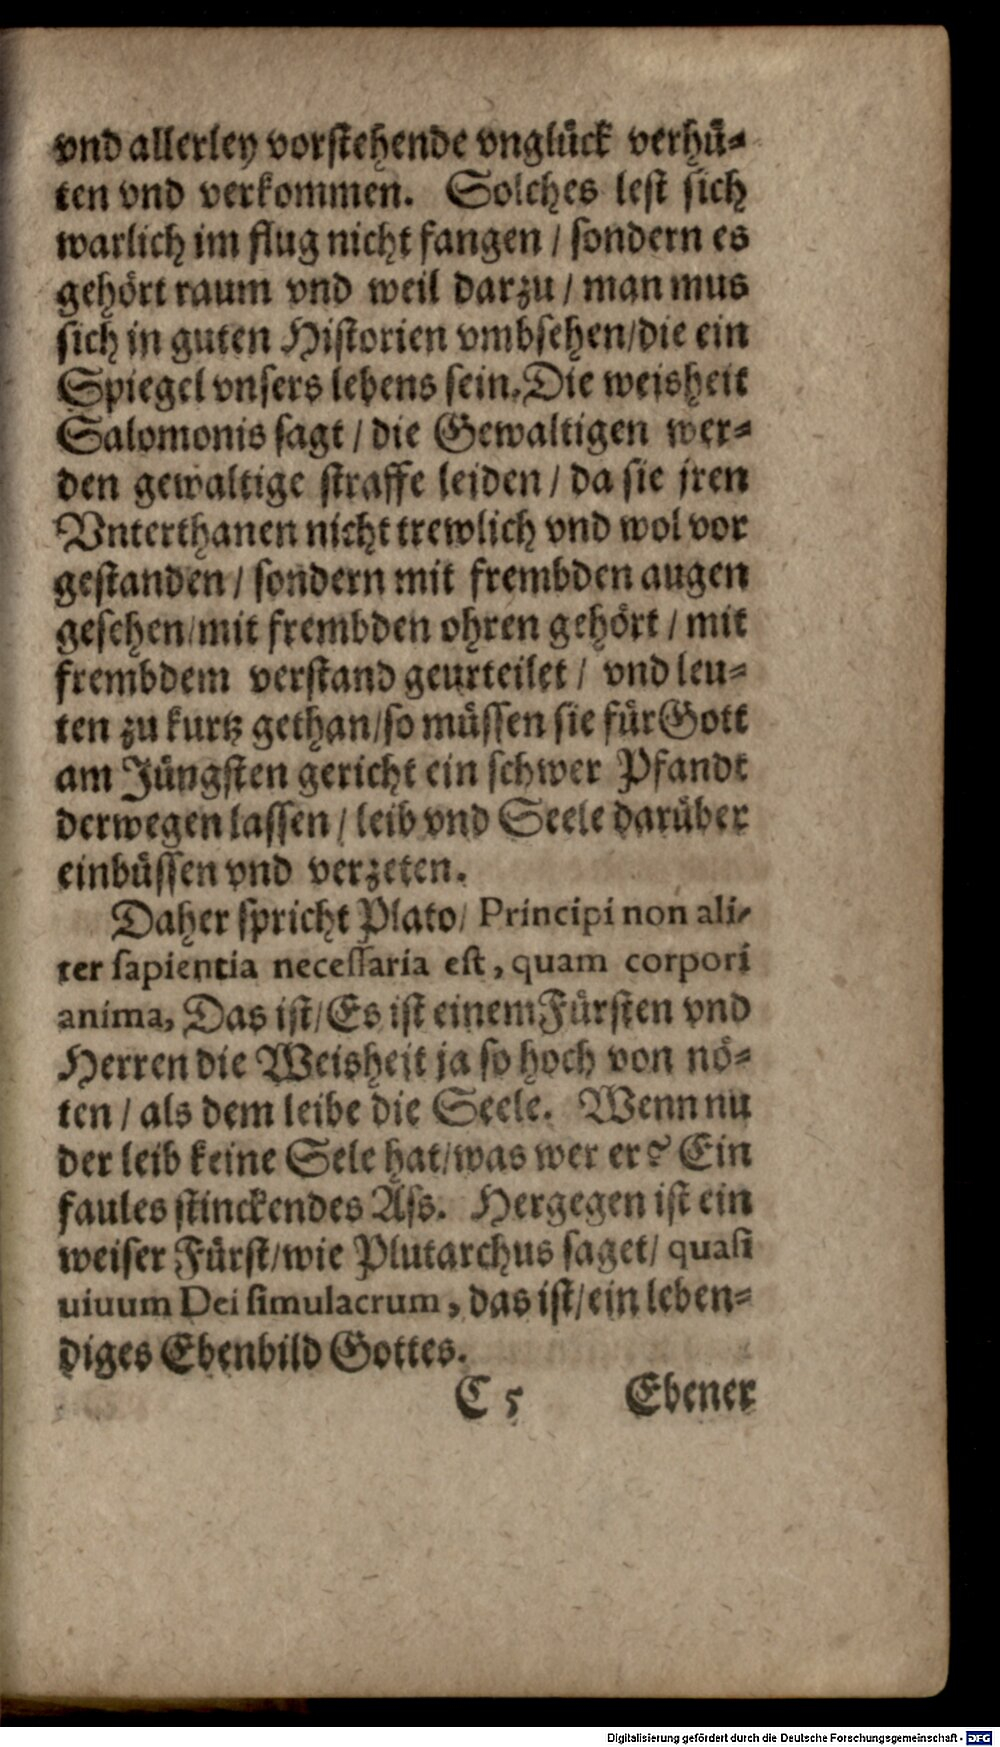 vnd allerley vorstehende vnglück verhü-
ten vnd verkommen. Solches lest sich
warlich im flug nicht fangen / sondern es
gehört raum vnd weil darzu / man mus
sich in guten Historien vmbsehen/die ein
Spiegel vnsers lebens sein. Die weisheit
Salomonis sagt / die Gewaltigen wer-
den gewaltige straffe leiden / da sie jren
Vnterthanen nicht trewlich vnd wol vor
gestanden / sondern mit frembden augen
gesehen/mit frembden ohren gehört / mit
frembdem verstand geurteilet / vnd leu-
ten zu kurtz gethan/so müssen sie für Gott
am Jüngsten gericht ein schwer Pfandt
derwegen lassen / leib vnd Seele darüber
einbüssen vnd verzeten.
Daher spricht Plato/ Principi non ali-
ter sapientia necessaria est, quam corpori
anima, Das ist/Es ist einem Fürsten vnd
Herren die Weisheit ja so hoch von nö-
ten / als dem leibe die Seele. Wenn nu
der leib keine Sele hat/was wer er? Ein
faules stinckendes Ass. Hergegen ist ein
weiser Fürst/wie Plutarchus saget/ quasi
uiuum Dei simulacrum, das ist/ein leben-
diges Ebenbild Gottes.
C 5 Ebener
Digitalisierung gefördert durch die Deutsche Forschungsgemeinschaft - DFG